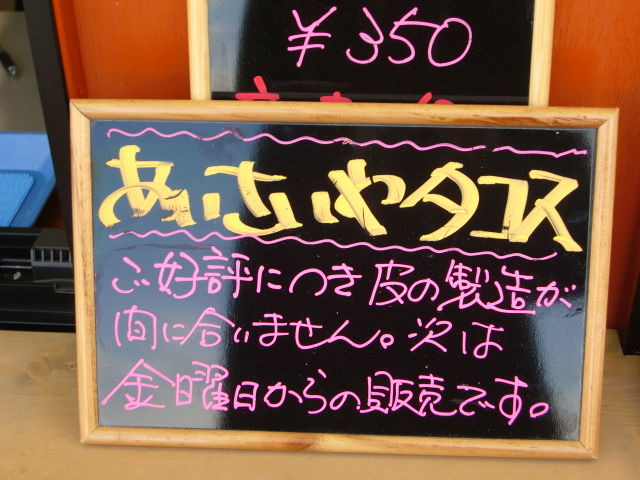 ¥350
あいさいやタコス
ご好評につき皮の製造が
間に合いません。次は
金曜日からの販売です。